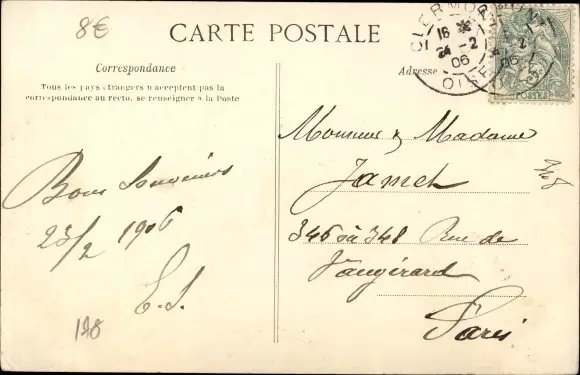 8€
CARTE POSTALE
CLERMONT
OISE
16
24 -2
06
POSTES
Correspondance
Adresse
Tous les pays étrangers n'acceptent pas la
correspondance au recto, se renseigner à la Poste
Monsieur & Madame
Bons Souvenirs
23/2 1906
E.S.
198
346 à 348 Rue de
Vaugirard
Paris